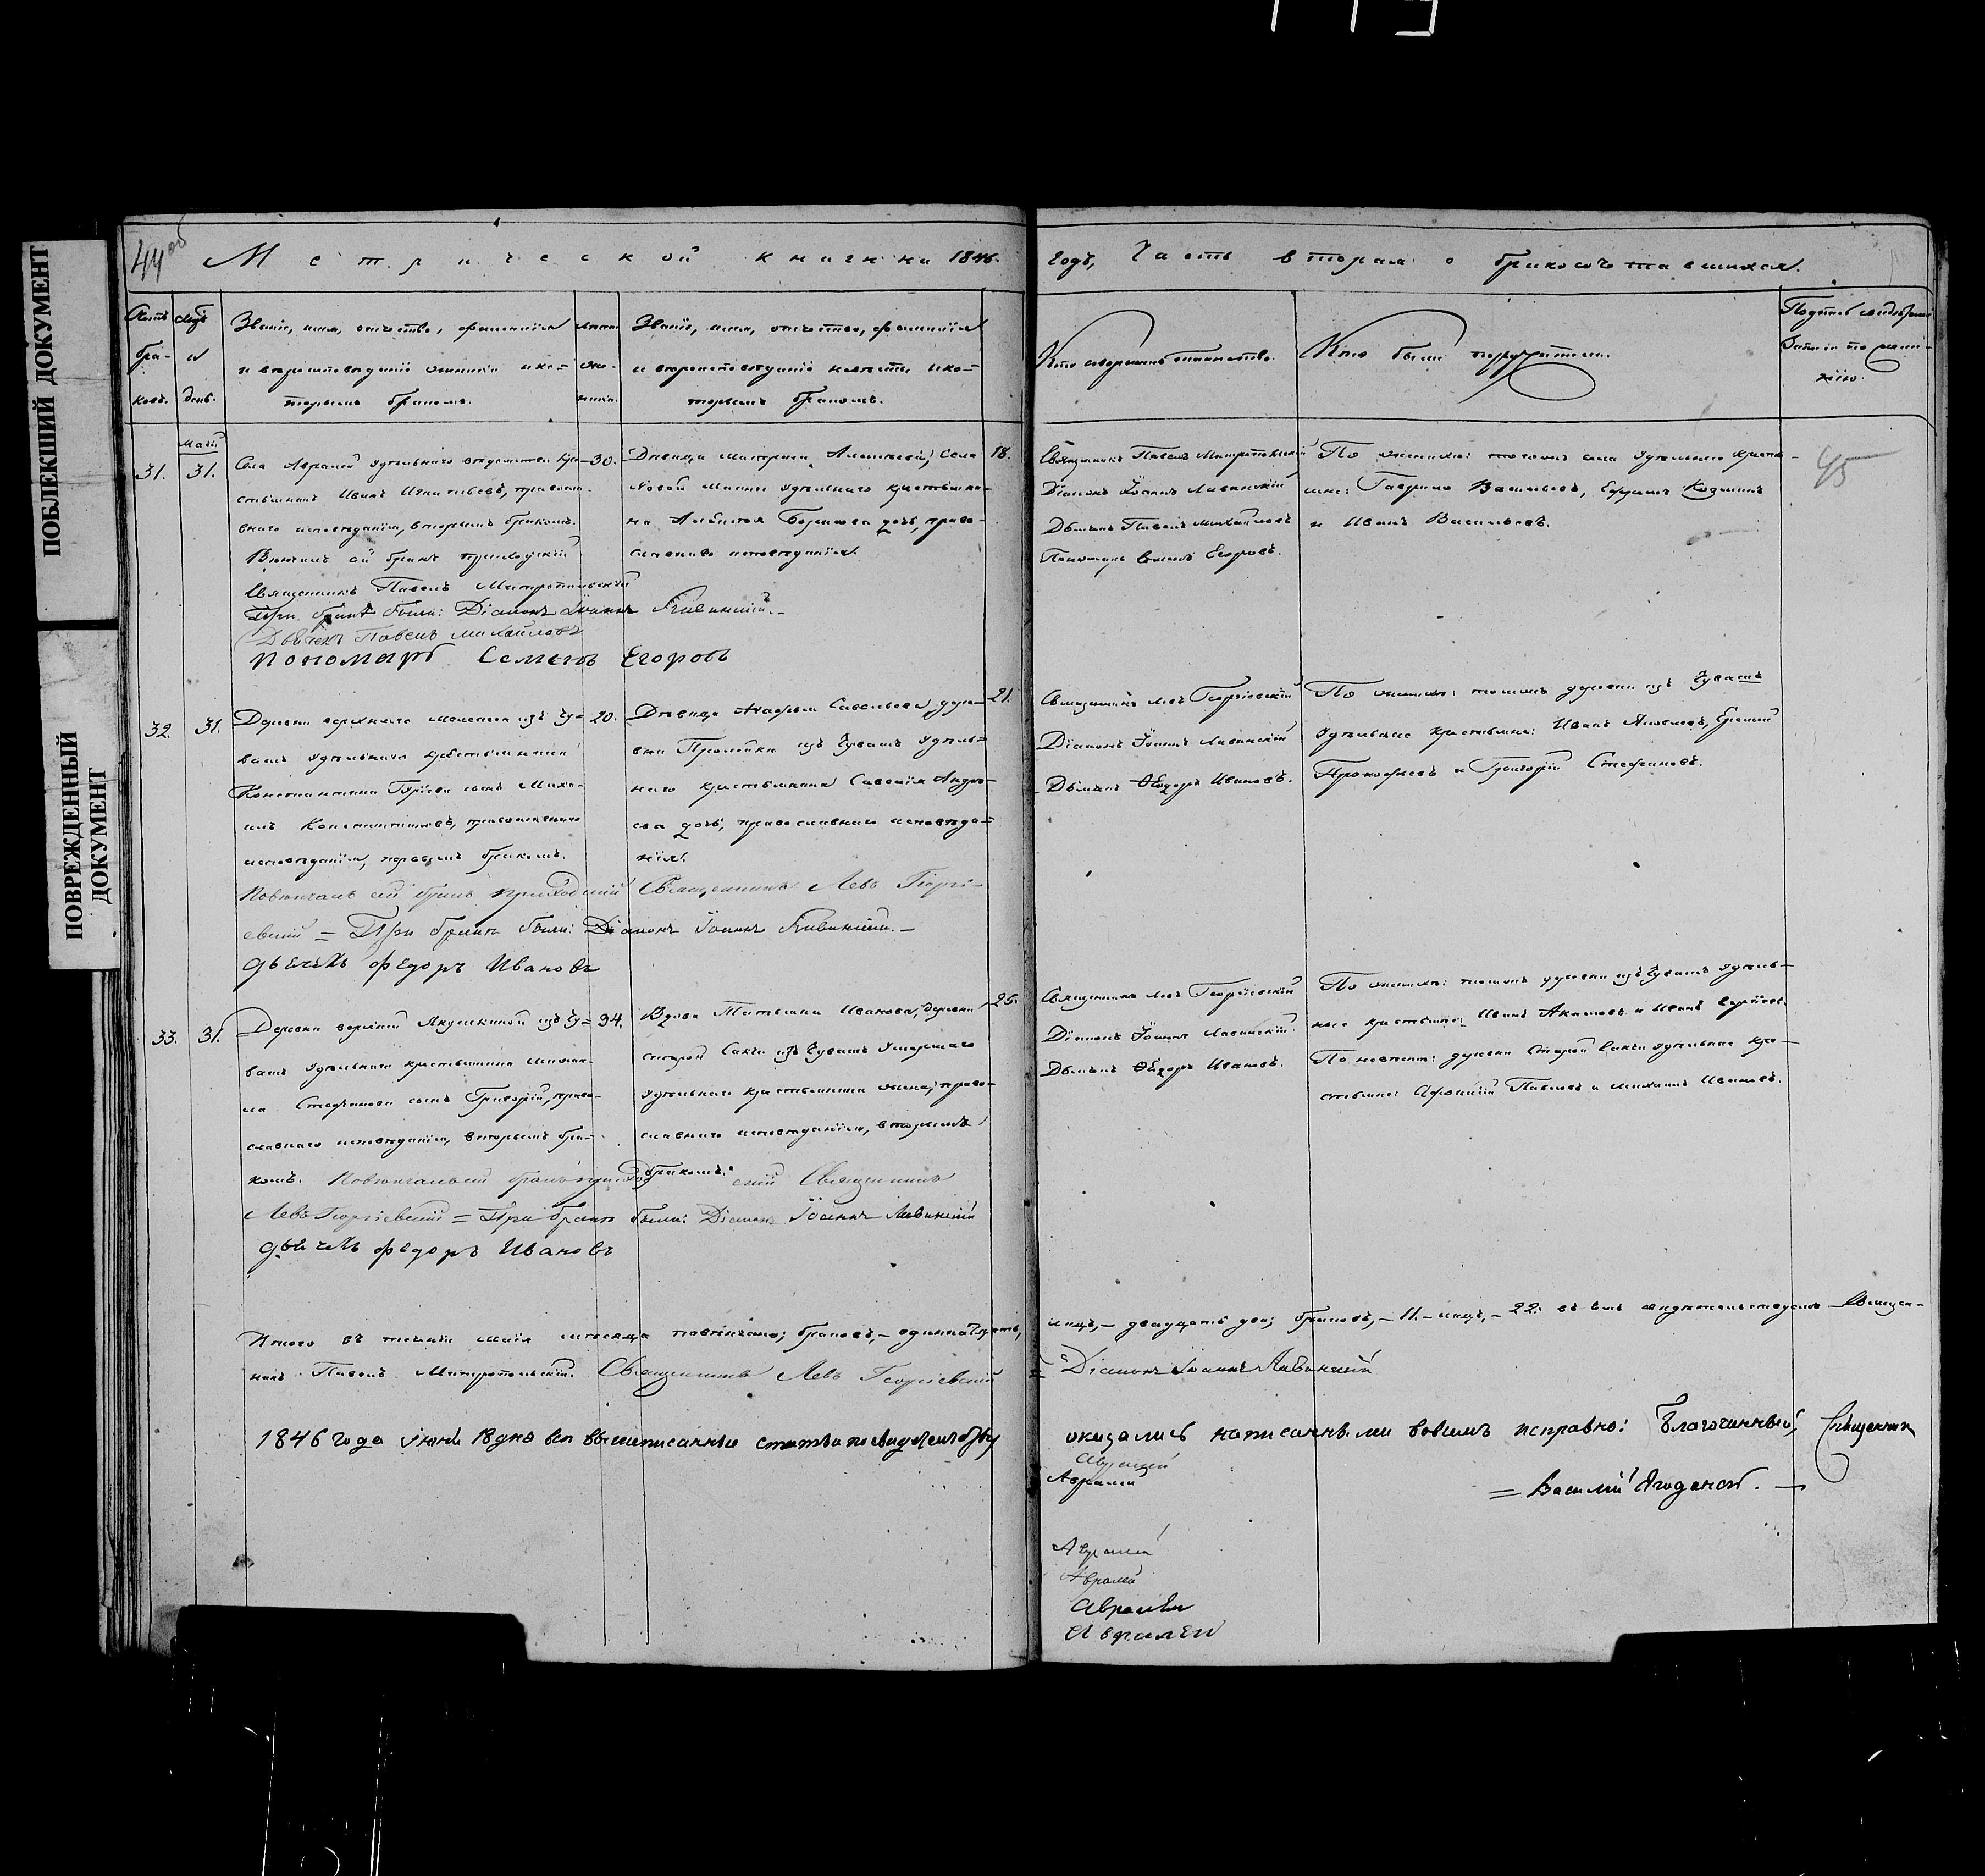 ПОБЛЕКШИЙ ДОКУМЕНТ
ПОВРЕЖДЕННЫЙ
ДОКУМЕНТ
44 об
Метрической книги на 1846.
годъ, Часть вторая о бракосочетавшихся.
Счетъ
бра-
ковъ.
Мцъ
и
день.
Званіе, имя, отчество, фамилія
и вѣроисповѣданіе жениха и ко=
торымъ бракомъ.
лѣта
же-
ниха.
Званіе, имя, отчество, фамилія
и вѣроисповѣданіе невѣсты и ко=
торымъ бракомъ.
Кто совершалъ таинство.
Кто были поручители.
31.
Маій
31.
Села Авралей удѣльнаго вѣдомства кре-
стьянинъ Иванъ Игнатьевъ, правосла-
внаго исповѣданія, вторымъ бракомъ.
Вѣнчалъ сей бракъ приходскій
Священникъ Павелъ Митропольскій
При бракѣ были: Діаконъ Іоаннъ Ливинскій.-
Дьячекъ Павелъ Михайловъ
Пономарь Семенъ Егоровъ
30.
Дѣвица Матрена Алексѣева, села
Новой Маины удѣльнаго крестьяни-
на дочь, право-
славнаго исповѣданія.
18.
Священникъ Павелъ Митропольскій
Діаконъ Іоаннъ Ливинскій
Дьячекъ Павелъ Михайловъ
Пономарь Семенъ Егоровъ.
По женихѣ: тогожъ села удѣльные кресть-
яне: Гаврило Васильевъ, Ефремъ Козминъ
и Иванъ Васильевъ.
45
32.
31.
Деревни верхняго Мелекеса изъ Чу=
вашъ удѣльнаго крестьянина
Константина сынъ Миха-
илъ Константиновъ, православнаго
исповѣданія, первымъ бракомъ.
Повѣнчалъ сей бракъ приходскій Священникъ Левъ Георгі-
евскій = При бракѣ были: Діаконъ Іоаннъ Ливинскій.-
дьячекъ федоръ Ивановъ
20.
Дѣвица Марья Савельева, дере-
вни Пролейки изъ Чувашъ удѣль=
наго крестьянина Савелія Андре-
ева дочь, православнаго исповѣда=
нія.
21.
Священникъ Левъ Георгіевскій
Діаконъ Іоаннъ Ливинскій
Дьячекъ Ѳеодоръ Ивановъ.
По женихѣ: тойжъ деревни изъ Чувашъ
удѣльные крестьяне: Иванъ Яковлевъ, Еремій
Прокофьевъ и Григорій Стефановъ.
33.
31.
Деревни верхней Якушкиной изъ Чу=
вашъ удѣльнаго крестьянина Михаи-
ла Стефанова сынъ Григорій, право-
славнаго исповѣданія, вторымъ бра-
комъ. Повѣнчалъ сей бракъ приходскій Священникъ
Левъ Георгіевскій = При бракѣ были: Діаконъ Іоаннъ Ливинскій
дьячекъ федоръ Ивановъ
34.
Вдова Татьяна Иванова, деревни
старой Сахчи изъ Чувашъ умершаго
удѣльнаго крестьянина жена, право-
славнаго исповѣданія, вторымъ
бракомъ.
25.
Священникъ Левъ Георгіевскій
Діаконъ Іоаннъ Ливинскій.
Дьячекъ Ѳеодоръ Ивановъ.
По женихѣ: тойжъ деревни изъ Чувашъ удѣль-
ные крестьяне: Иванъ и Иванъ Сергѣевъ.
По невѣстѣ: деревни Старой Сахчи удѣльные кре-
стьяне: Павловъ и Михаилъ Ивановъ.
Итого въ теченіи Маія мѣсяца повѣнчано; браковъ,- одиннадцать,
лицъ,- двадцать два; браковъ,- 11.- лицъ,- 22: въ чемъ свидѣтельствуемъ Священ-
никъ Павелъ Митропольскій. Священникъ Левъ Георгіевскій
= Діаконъ Іоаннъ Ливинскій
1846 года Іюня 18 дня все вышеписанныя статьи по свидѣтельству
оказались написанными совсемъ исправно: Благочинный, Священникъ
= Василій Ягодинской. —
Авралей
Авралей
Авралей
Авралей
Авралей
Авралеи